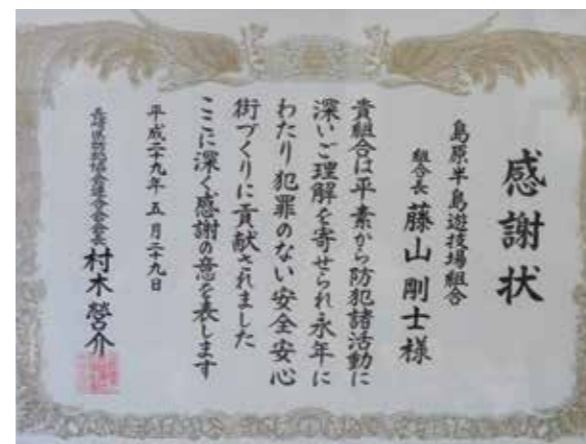 感謝状
島原半島遊技場組合
組合長 藤山剛士様
貴組合は平素から防犯諸活動に
深いご理解を寄せられ永年に
わたり犯罪のない安全安心
街づくりに貢献されました
ここに深く感謝の意を表します
平成二十九年五月二十九日
長崎県防犯協会連合会会長 村木營介